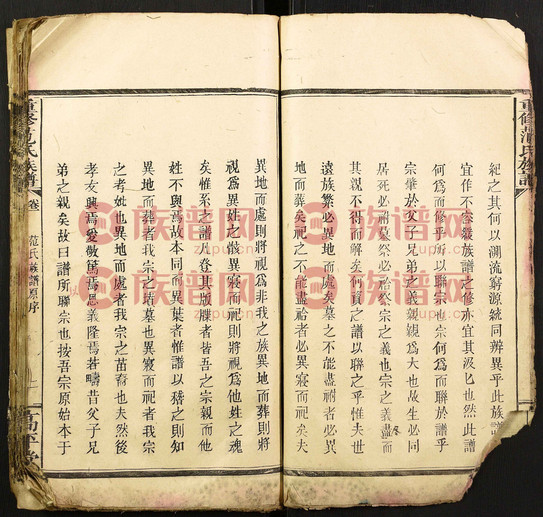 重修范氏族譜
紀之其何以溯流窮源統同辨異乎此族譜
宜作不容緩族譜之修亦宜其汲匕也然此譜
何為而修乎所以聯宗也宗何為而聯於譜乎
宗肇於父子兄弟之義親親為大也故生必同
居死必消墓祭必祫祭宗之義也宗之義盡而
其親不得而解矣何賢之譜以聯之乎惟夫世
遠族繁必異地而處矣墓之不能盡祔者必異
地而葬矣祀之不能盡祫者必異寢而祀矣夫
異地而處則將視為非我之族異地而葬則將
視為異姓之骸異寢而祀則將視為他姓之魂
矣惟系之譜凡登其版牒者皆吾之宗親而他
姓不與焉故本同而異葉者惟譜以稽之則知
異地而葬者我宗之塋墓也異寢而祀者我宗
之考妣也異地而處者我宗之苗裔也夫然後
孝友興焉愛敬篤焉恩義隆焉若疇昔父子兄
弟之親矣故曰譜所聯宗也按吾宗原始本于
重修范氏族譜
卷
范氏族譜原序
高平堂
族谱网
zupu.cn
族谱网
zupu.cn
族谱网
zupu.cn
族谱网
zupu.cn